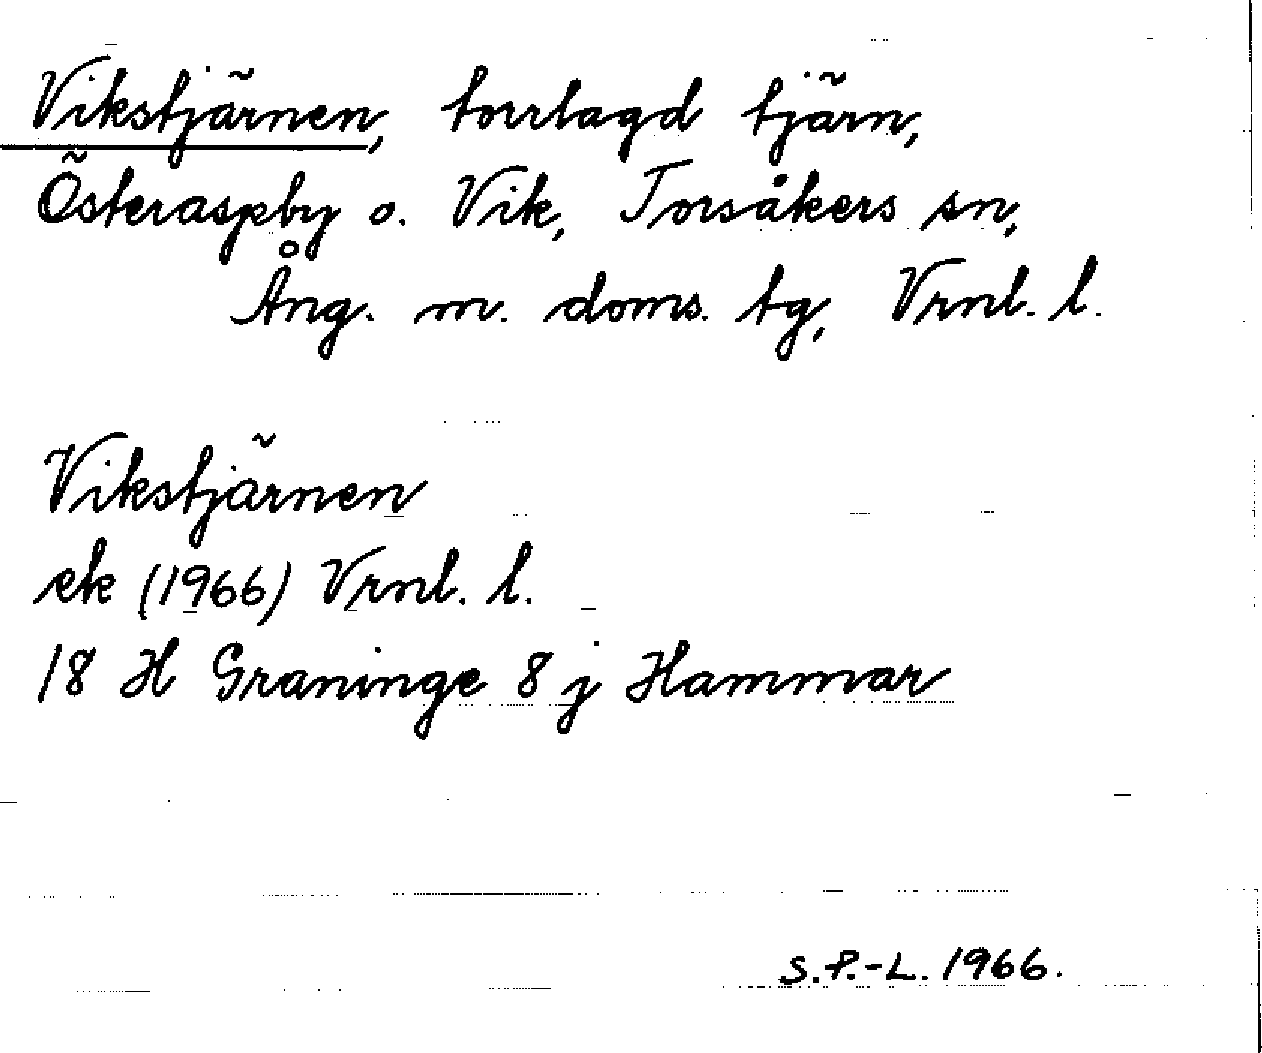 Vikstjärnen, torrlagd tjärn,
Österaspby o. Vik, Torsåkers sn,
Ång. m. doms. tg, Vrnl. l.
Vikstjärnen
ek (1966) Vrnl. l.
18 H Graninge 8 j Hammar
S.P.-L. 1966.